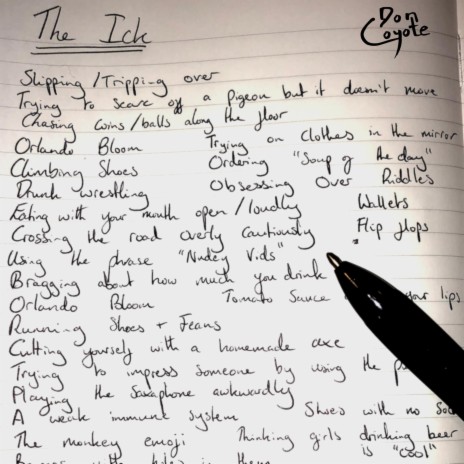 The Ick
Don Coyote
Slipping/Tripping over
Trying to scare off a pigeon but it doesn't move
Chasing coins/balls along the floor
Orlando Bloom Trying on clothes in the mirror
Climbing Shoes Ordering "Soup of the day"
Drunk wrestling Obsessing over Riddles
Eating with your mouth open/loudly Wallets
Crossing the road overly cautiously Flip flops
Using the phrase "Nudey Vids"
Bragging about how much you drink
Orlando Bloom Tomato Sauce your lips
Running Shoes + Jeans
Cutting yourself with a homemade axe
Trying to impress someone by using the
Playing the Saxaphone awkwardly
A weak immune system Shoes with no
The monkey emoji Thinking girls drinking beer
with holes in them is "cool"